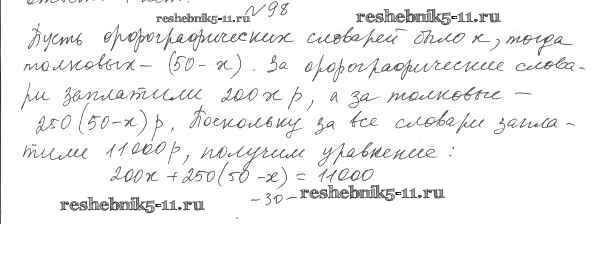 №98
reshebnik5-11.ru reshebnik5-11.ru
Пусть орфографических словарей было x, тогда
толковых – (50 - x). За орфографические слова-
ри заплатили 200x р, а за толковые –
250(50-x) р. Поскольку за все словари запла-
тили 11000р, получим уравнение:
200x + 250(50 - x) = 11000
reshebnik5-11.ru -30- reshebnik5-11.ru